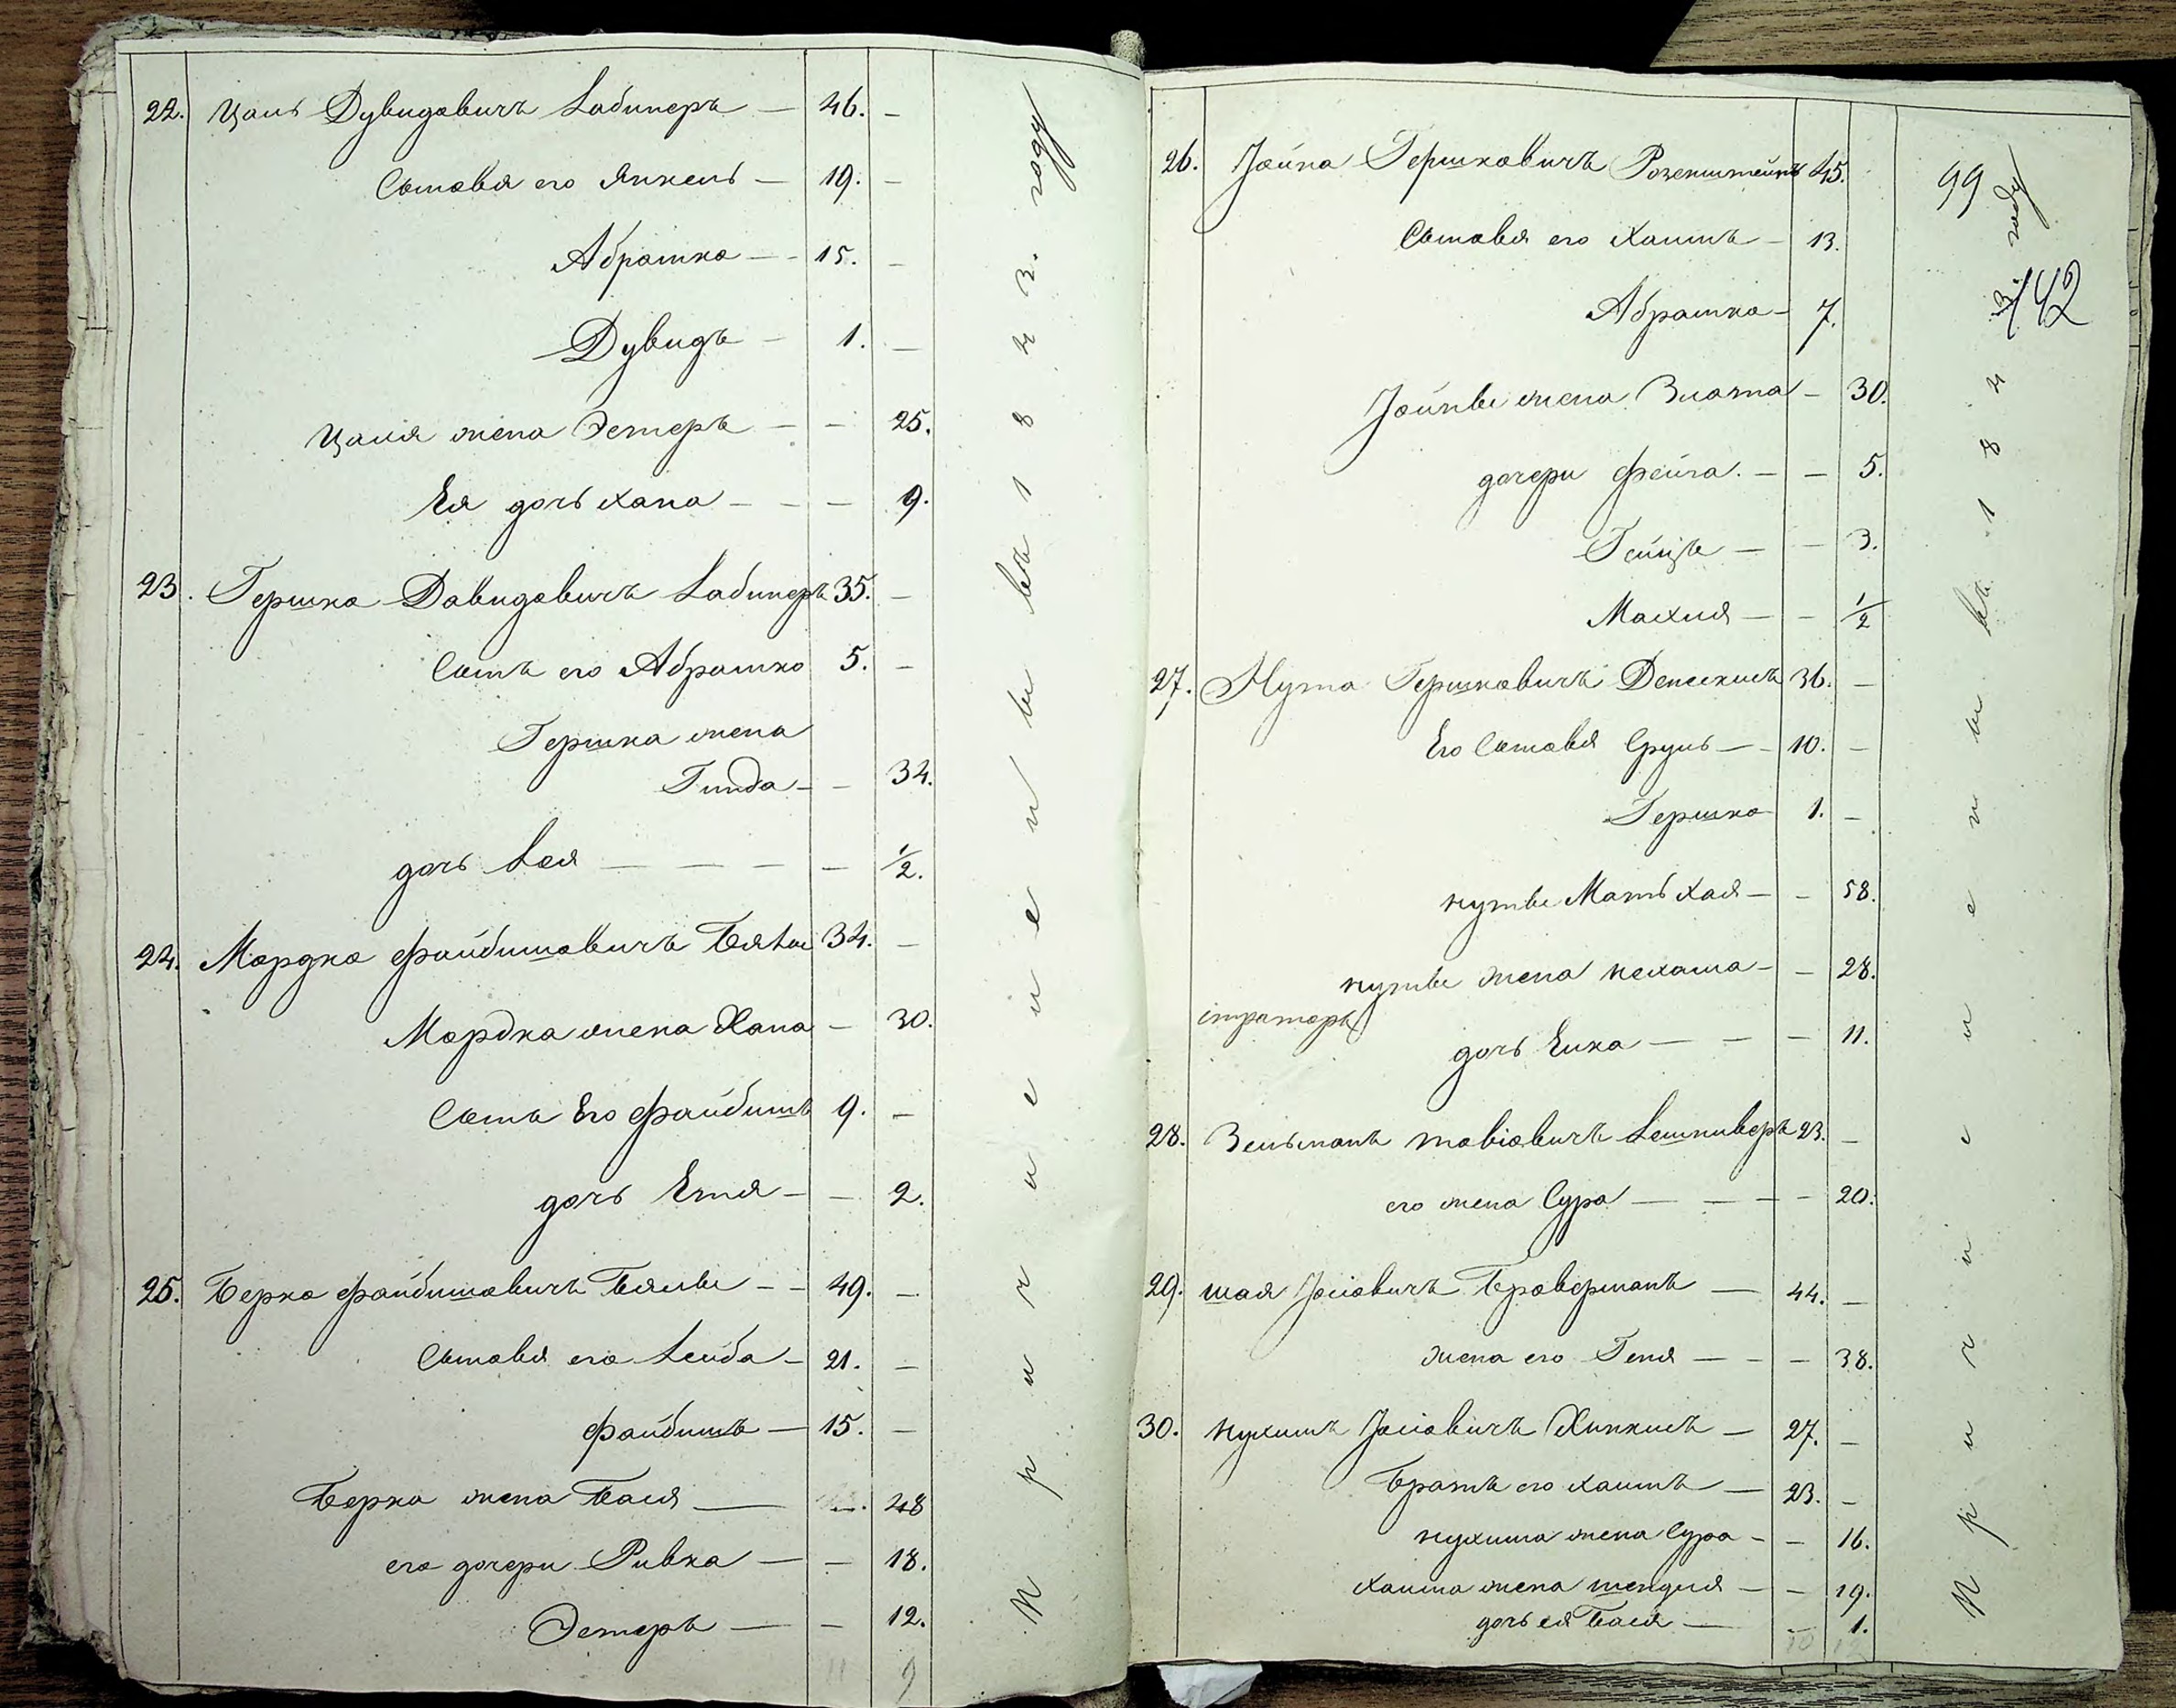 22. Цаль Дувидовичъ Лабинеръ — 46. —
Сыновья его Янкель — 19. —
Абрамко — 15. —
Дувидъ — 1. —
Цаля жена Эстеръ — — 25.
Ея дочь Хана — — — 9.
23. Гершко Давидовичъ Лабинеръ 35. —
Сынъ его Абрамко 5. —
Гершка жена
Гинда — — 34.
дочь Лея — — — — 1/2.
24. Мордко Файбишовичъ 34. —
Мордка жена Хана — 30.
Сынъ Его Файбишъ 9. —
дочь Етя — — 2.
25. Берко Файбишовичъ Бялы — — 49. —
Сыновья его Лейба — 21. —
Файбишъ — 15. —
Берка жена Бася — — 48
его дочери Ривка — — 18.
Эстеръ — — 12.
11 9
Причисленны въ 1843. году
99
142
26. Іойна Гершковичъ Розенштейнъ 45.
Сыновья его Хаимъ — 13.
Абрамко — 7.
Іойны жена Злота — 30.
дочери Фейга. — — 5.
Гейця — — 3.
Махля — — 1/2
27. Нута Гершковичъ 36. —
Его Сыновья Сруль — — 10. —
Гершко 1. —
нуты Мать Хая — — 58.
нуты жена нехама — — 28.
дочь Елка — — — 11.
28. Зельманъ товіовичъ 23. —
его жена Сура — — — — 20.
29. шая Іосіовичъ Броверманъ — 44. —
жена его Геня — — — 38.
30. нухимъ Іосіовичъ — 27. —
Братъ его хаимъ — 23. —
нухима жена Сура — — 16.
хаима жена шендля — — 19.
дочь ея Бася — — 1.
10 12
Причисленны въ 1843. году